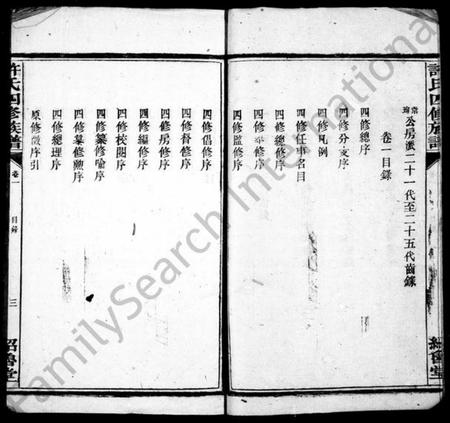 許氏四修族譜
常琦公房派二十一代至二十五代齒錄
卷一目錄
四修總序
四修分支序
四修凡例
四修任事名目
四修總修序
四修監修序
四修倡修序
四修督修序
四修房修序
四修編修序
四修校閱序
四修纂修喻序
四修總理序
原修散序引
許氏四修族譜
卷一
目錄
三
紹魯堂
FamilySearch International